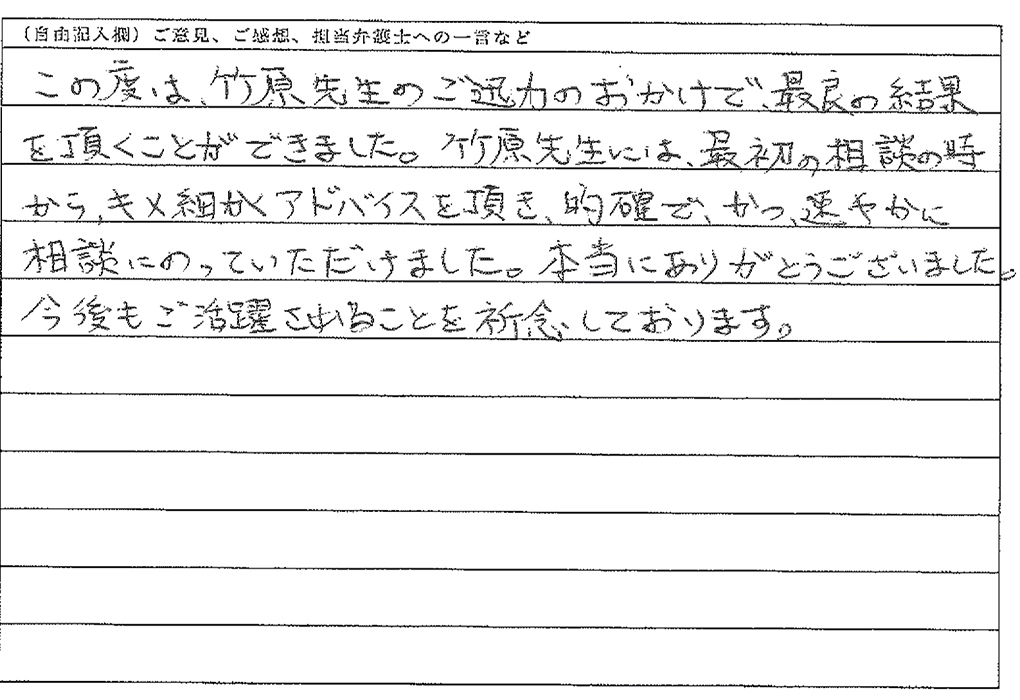 (自由記入欄) ご意見、ご感想、担当弁護士への一言など
この度は、竹原先生のご迅力のおかげで、最良の結果
を頂くことができました。竹原先生には、最初の相談の時
から、キメ細かくアドバイスを頂き、的確で、かつ、速やかに
相談にのっていただけました。本当にありがとうございました。
今後もご活躍されることを祈念しております。